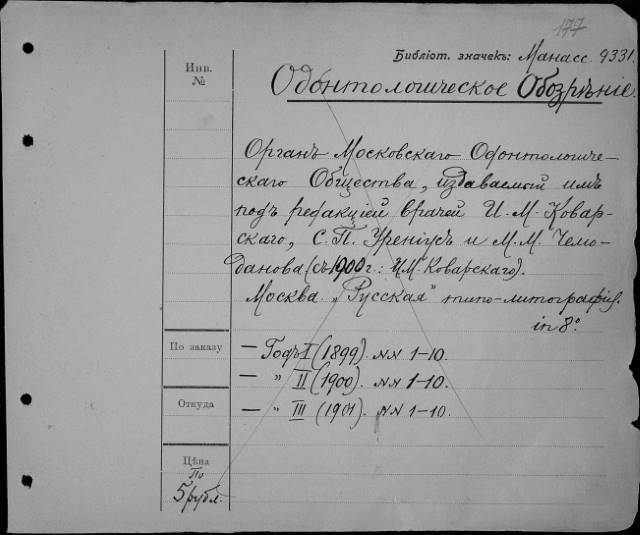 177
Библіот. значекъ: Манасс. 9331.
Инв.
№
Одонтологическое Обозрѣніе.
Органъ Московскаго Одонтологиче-
скаго Общества, издаваемый имъ
подъ редакціей врачей И. М. Ковар-
скаго, С. П. Уреніусъ и М. М. Чемо-
данова (съ 1900 г.: И. М. Коварскаго).
Москва. „Русская" типо-литографія.
in 8°.
По заказу
— Годъ I (1899). NN 1-10.
— „ II (1900). NN 1-10.
Откуда
— „ III (1901). NN 1-10.
Цѣна
По
5 рубл.